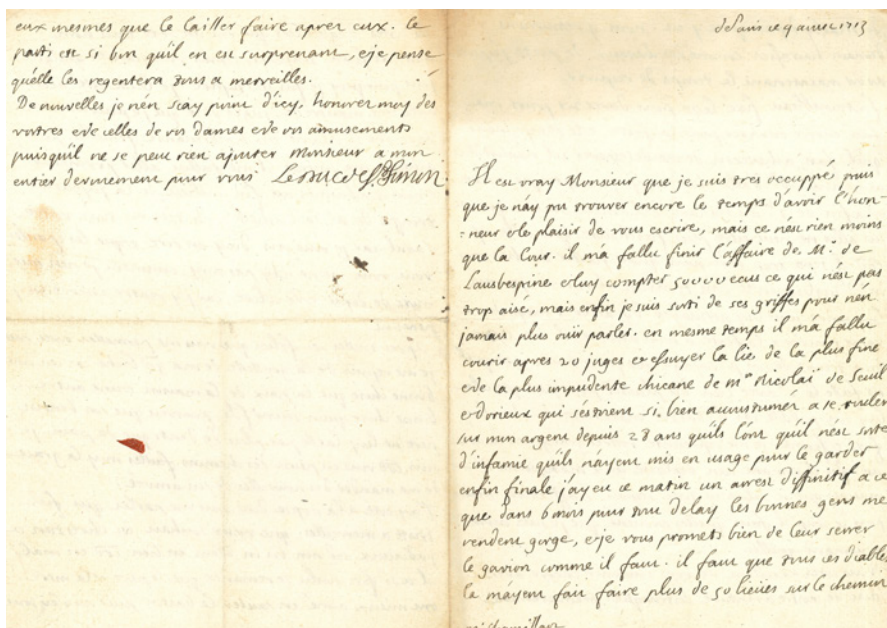 eux mesmes que le laisser faire apres eux. le
parti est si bon qu'il en est surprenant, e je pense
qu'elle les regentera tous a merveilles.
De nouvelles je n'en scay point d'icy. honorez moy des
vostres e de celles de vos dames e de vos amusements
puisqu'il ne se peut rien ajouter Monsieur a mon
entier devouement pour vous Le Duc de St Simon
de Paris ce 9 1713
Il est vray Monsieur que je suis tres occuppé puis
que je n'ay pu trouver encore le temps d'avoir l'hon-
=neur e le plaisir de vous escrire, mais ce n'est rien moins
que la Cour. il m'a fallu finir l'affaire de Mr. de
Laubespine e luy compter 50000 ecus ce qui n'est pas
trop aisé, mais enfin je suis sorti de ses griffes pour n'en
jamais plus ouïr parler. en mesme temps il m'a fallu
courir apres 20 juges e essuyer la lie de la plus fine
e de la plus impudente chicane de Nicolaï de Seuil
e Dorieux qui s'estoient si bien accoustumés a se rouler
sur mon argent depuis 28 ans qu'ils l'ont qu'il n'est sorte
d'infamie qu'ils n'ayent mis en usage pour le garder
enfin finale j'ay eu ce matin un arrest diffinitif a ce
que dans 6 mois pour tout delay les bonnes gens me
rendent gorge, e je vous promets bien de leur serrer
le gavion comme il faut. il faut que tous ces diables
la m'ayent fait faire plus de 50 lieües sur le chemin